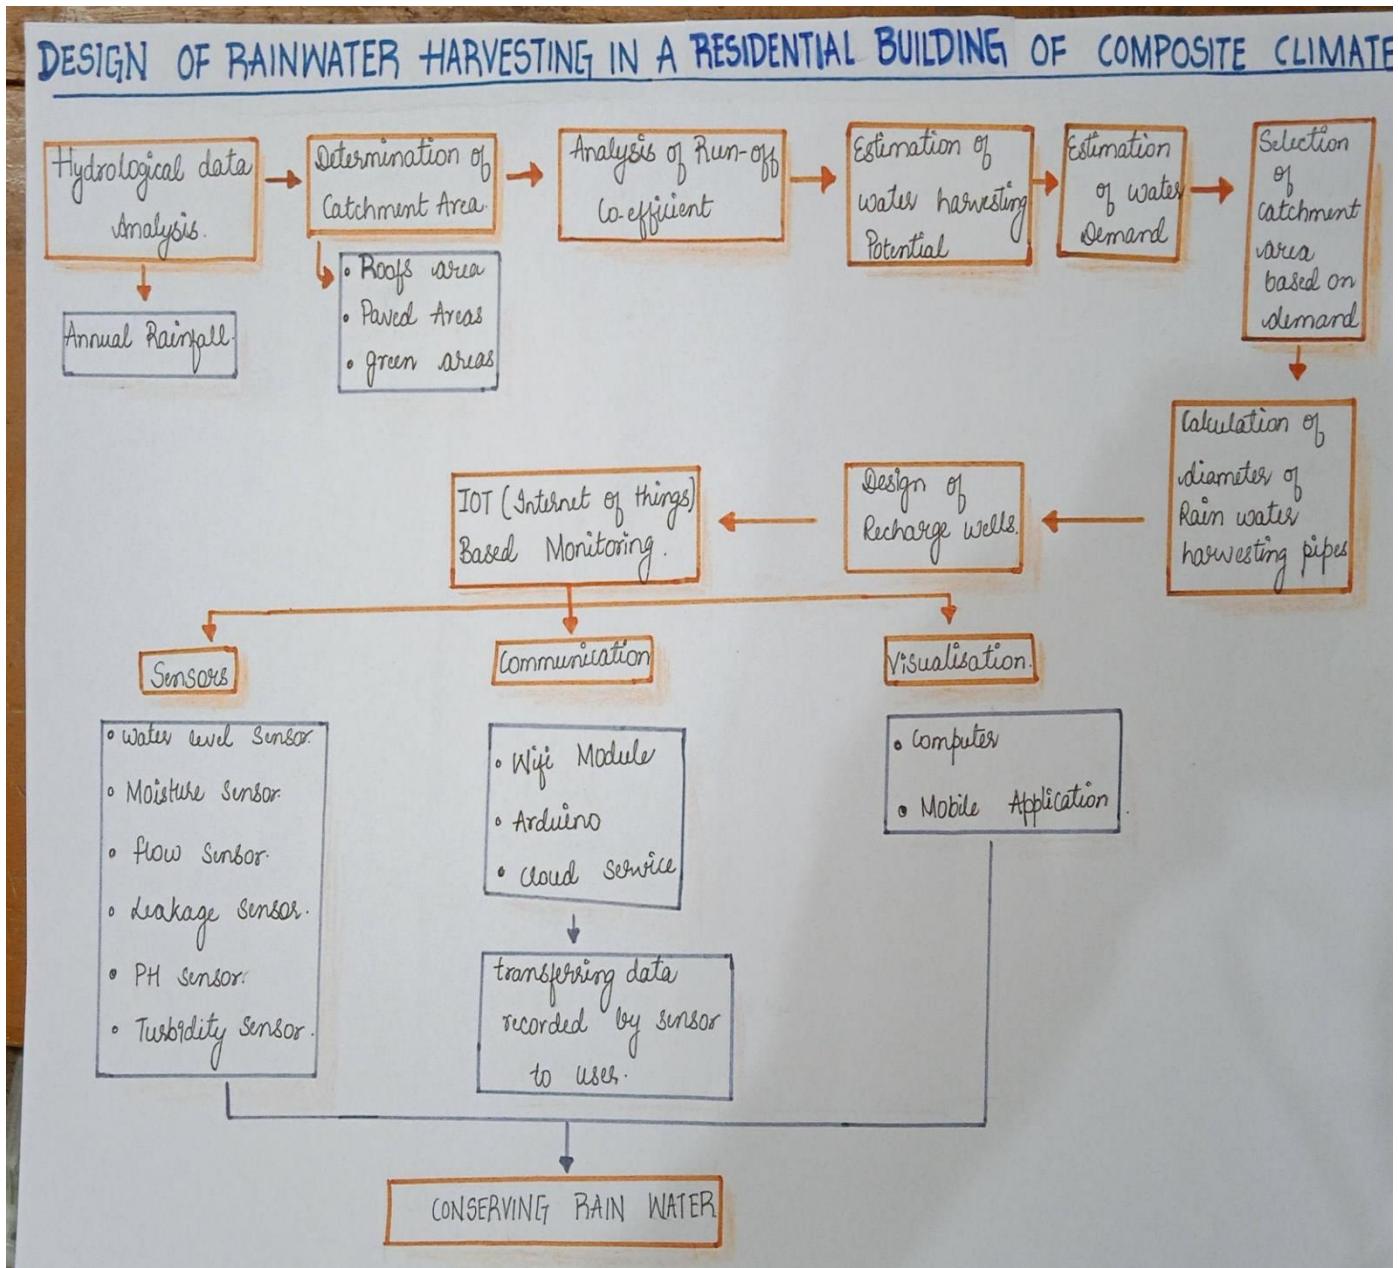 DESIGN OF RAINWATER HARVESTING IN A RESIDENTIAL BUILDING OF COMPOSITE CLIMATE
Hydrological data
Analysis.
Annual Rainfall.
Determination of
Catchment Area.
• Roofs area
• Paved Areas
• green areas
Analysis of Run-off
Co-efficient
Estimation of
water harvesting
Potential
Estimation
of water
Demand
Selection
of
catchment
area
based on
demand
Calculation of
diameter of
Rain water
harvesting pipes
Design of
Recharge wells.
IOT (Internet of things)
Based Monitoring.
Sensors
• water level Sensor.
• Moisture Sensor.
• flow Sensor.
• Leakage Sensor.
• PH sensor.
• Turbidity Sensor.
Communication
• Wifi Module
• Arduino
• cloud service
transferring data
recorded by sensor
to user.
Visualisation.
• Computer
• Mobile Application.
CONSERVING RAIN WATER